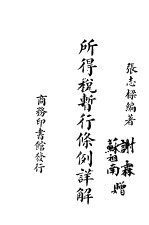 張志樑編著
謝霖
蘇祖南 贈
所得稅暫行條例詳解
商務印書館發行